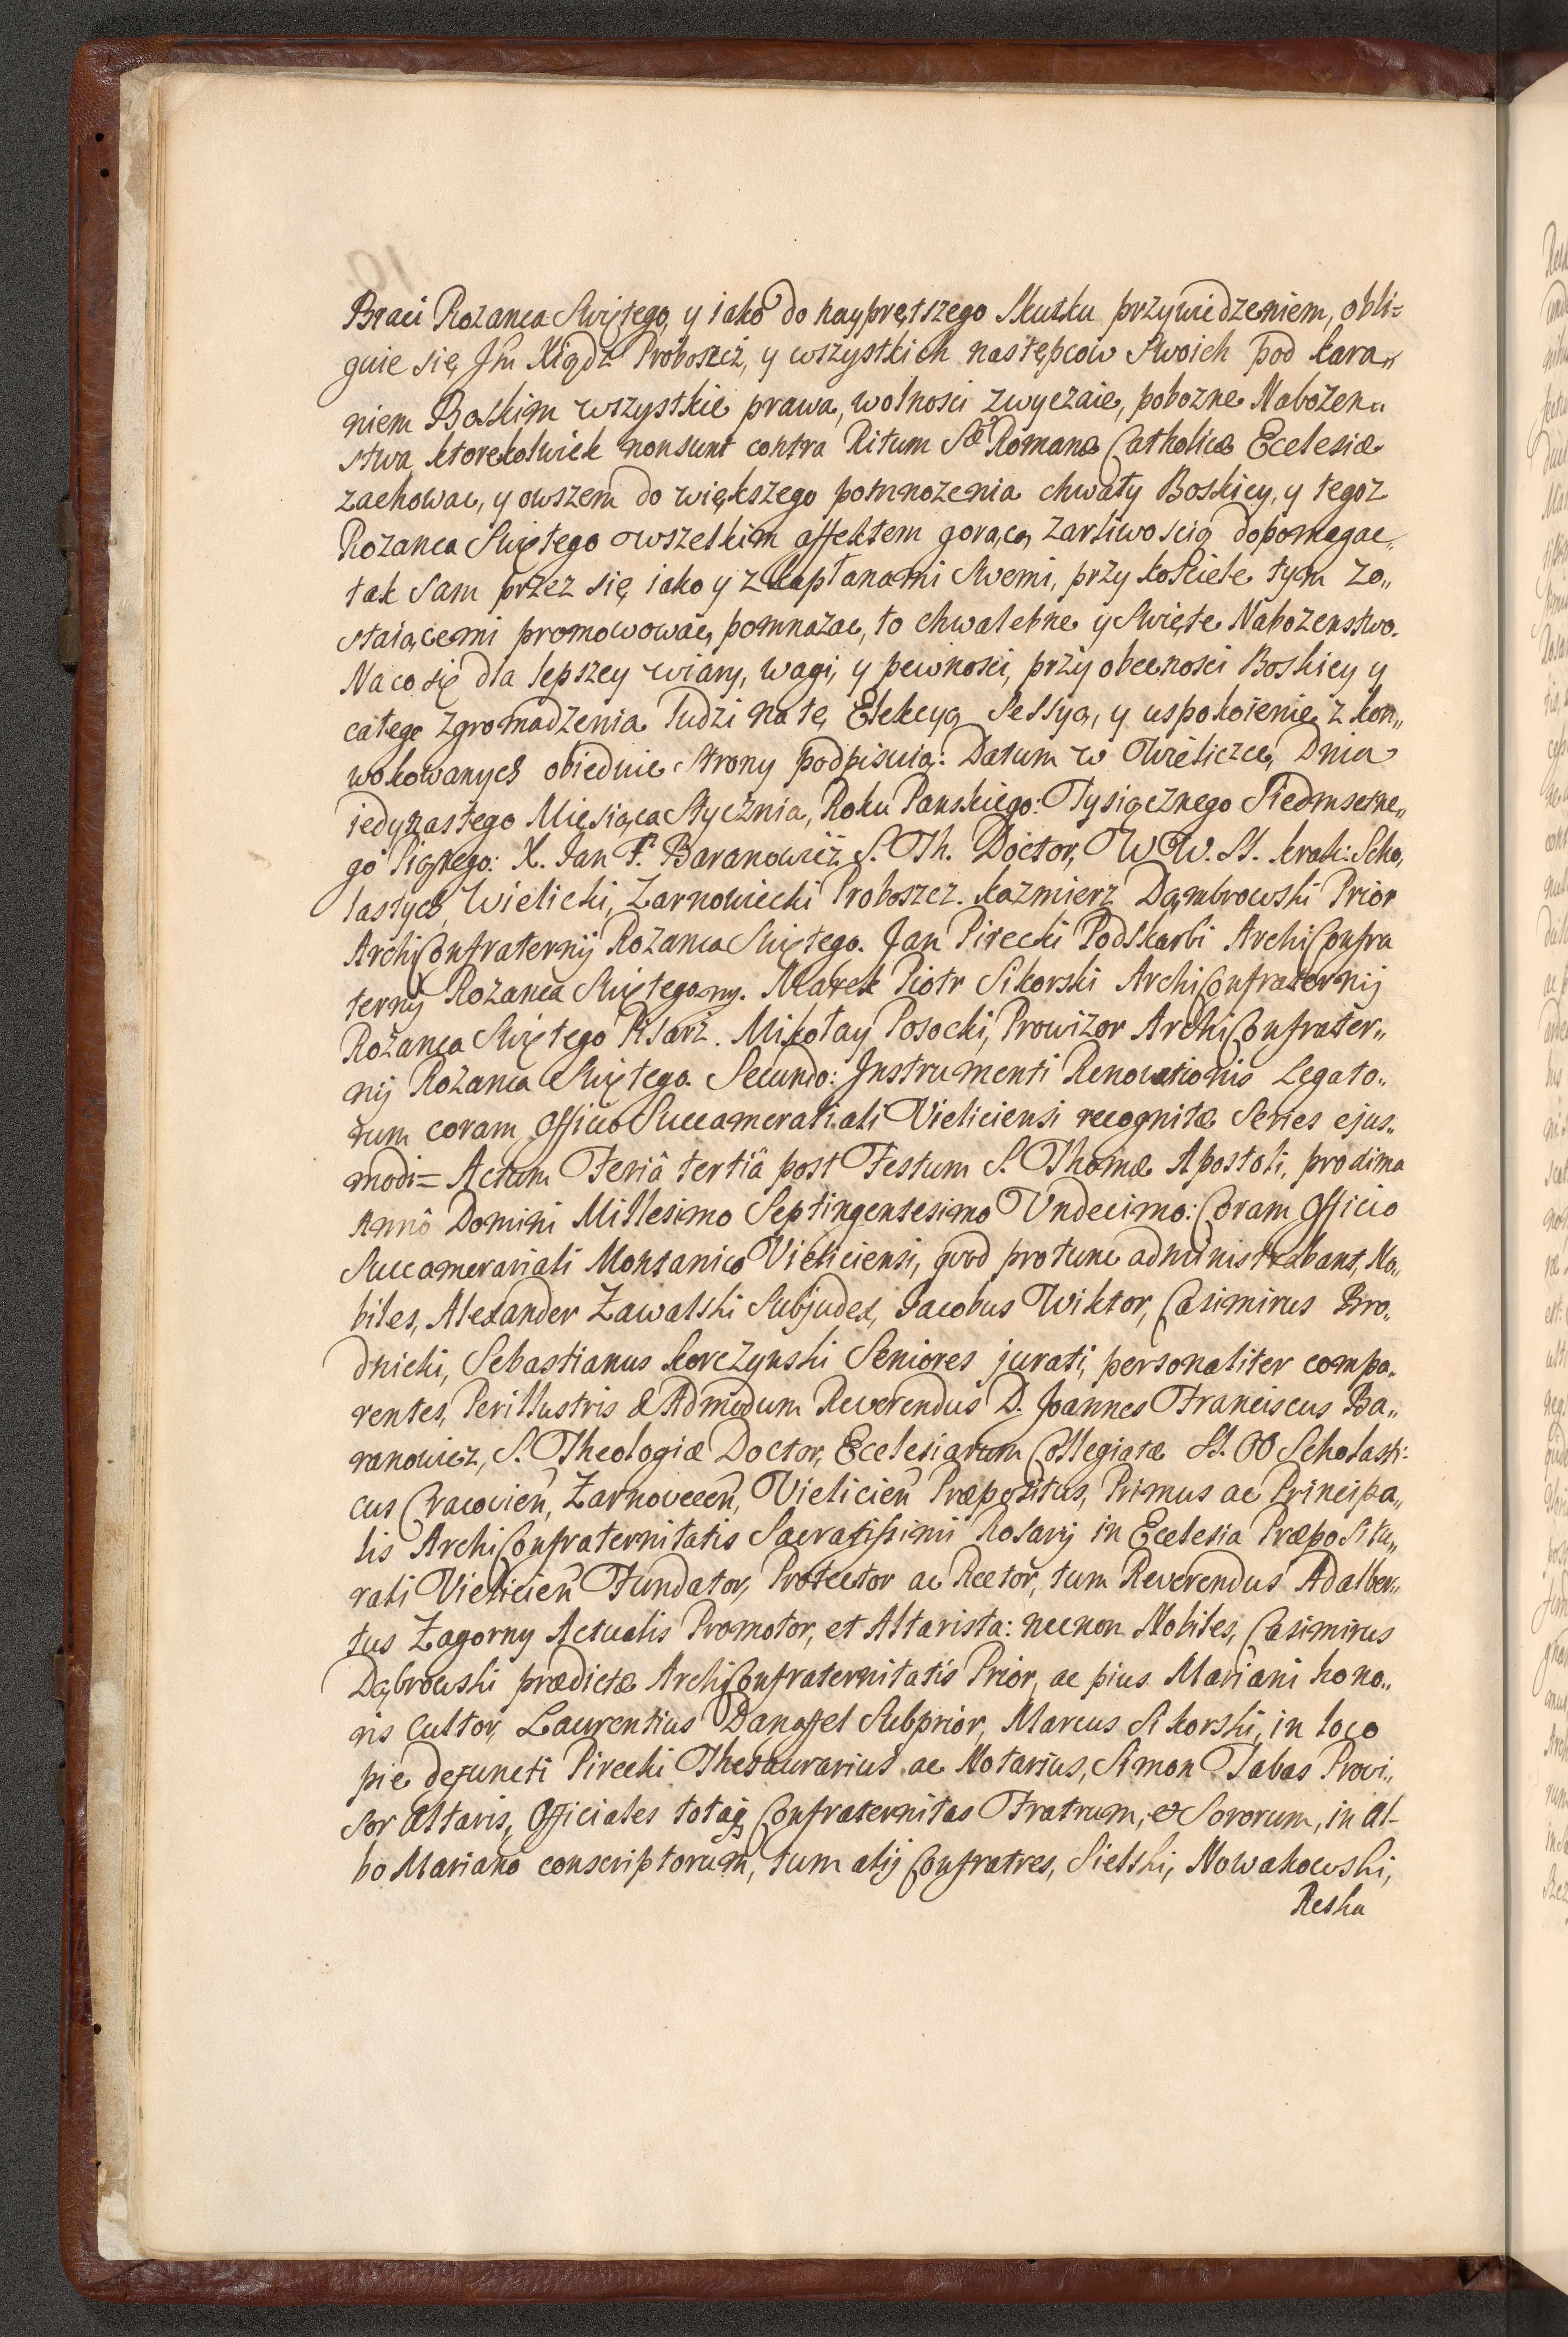 Braci Rozanca Swiętego, y iako do nayprętszego Skutku przywiedzeniem, obli=
guie się Jm̃ Xiądz Proboszcz, y wszystkich następcow Swoich pod kara„
niem Boskim wszystkie prawa, wolnosci zwyczaie, pobozne Nabozen„
stwa, ktorekolwiek non sunt contra Ritum Sæ Romanæ Catholicæ Ecclesiæ
zachowac, y owszem do większego pomnozenia chwały Boskiey, y tegoz
Rozanca Swiętego wszelkim affektem gorącą zarliwoscią dopomagac„
tak sam przez się iako y z Kapłanami Swemi, przy kosciele tym zo„
staiącemi promowowac, pomnazac, to chwalebne y Swięte Nabozenstwo.
Na co się dla lepszey wiary, wagi, y pewnosci, przy obecnosci Boskiey y
całego zgromadzenia ludzi na tę Elekcyą Sessyą, y uspokoienie z kon„
wokowanych obiedwie strony podpisuią: Datum w Wieliczce, Dnia
iedynastego Miesiąca Stycznia, Roku Panskiego: Tysiącznego Siedmsetne„
go Piątego: X. Jan F. Baranowicz S. Th. Doctor, W W. SS. krak: Scho„
lastych, Wielicki, Zarnowiecki Proboszcz. Kazmierz Dąmbrowski Prior
ArchiConfraternij Rozanca Swiętego. Jan Pirecki Podskarbi ArchiConfra
ternij Rozanca Swiętego mp. Marek Piotr Sikorski ArchiConfraternij
Rozanca Swiętego Pisarz. Mikołay Posocki, Prowizor ArchiConfrater„
nij Rozanca Swiętego. Secundo: Instrumenti Renovationis Legato„
rum coram Officio Succamerariali Vieliciensi recognitæ Series ejus„
modi = Actum Feriâ tertiâ post Festum S. Thomæ Apostoli, prodima
Annô Domini Millesimo Septingentesimo Undecimo: Coram Officio
Succamerariali Montanico Vieliciensi, quod protunc administrabant, No„
biles, Alexander Zawalski Subjudex, Jacobus Wiktor, Casimirus Bro„
dnicki, Sebastianus Korczynski Seniores jurati, personaliter compa„
rentes, Perillustris & Admodum Reverendus D. Joannes Franciscus Ba„
ranowicz, S. Theologiæ Doctor, Ecclesiarum Collegiatæ SS. OO Scholasti:
cus Cracovien̄, Zarnoveceñ, Vielicien̄ Præpositus, Primus ac Principa„
lis ArchiConfraternitatis Sacratissimi Rosarij in Ecclesia Præpositu„
rali Vielicien̄ Fundator, Protector ac Rector, tum Reverendus Adalber„
tus Zagorny Actualis Promotor, et Altarista: necnon Nobiles, Casimirus
Dąbrowski prædictæ ArchiConfraternitatis Prior, ac pius Mariani hono„
ris Cultor, Laurentius Danoffel Subprior, Marcus Sikorski, in loco
pie defuncti Pirecki Thesaurarius ac Notarius, Simon Tabas Provi„
sor Altaris, Officiales totaq Confraternitas Fratrum, & Sororum, in Al-
bo Mariano conscriptorum, tum alij Confratres, Sielski, Nowakowski,
Reska